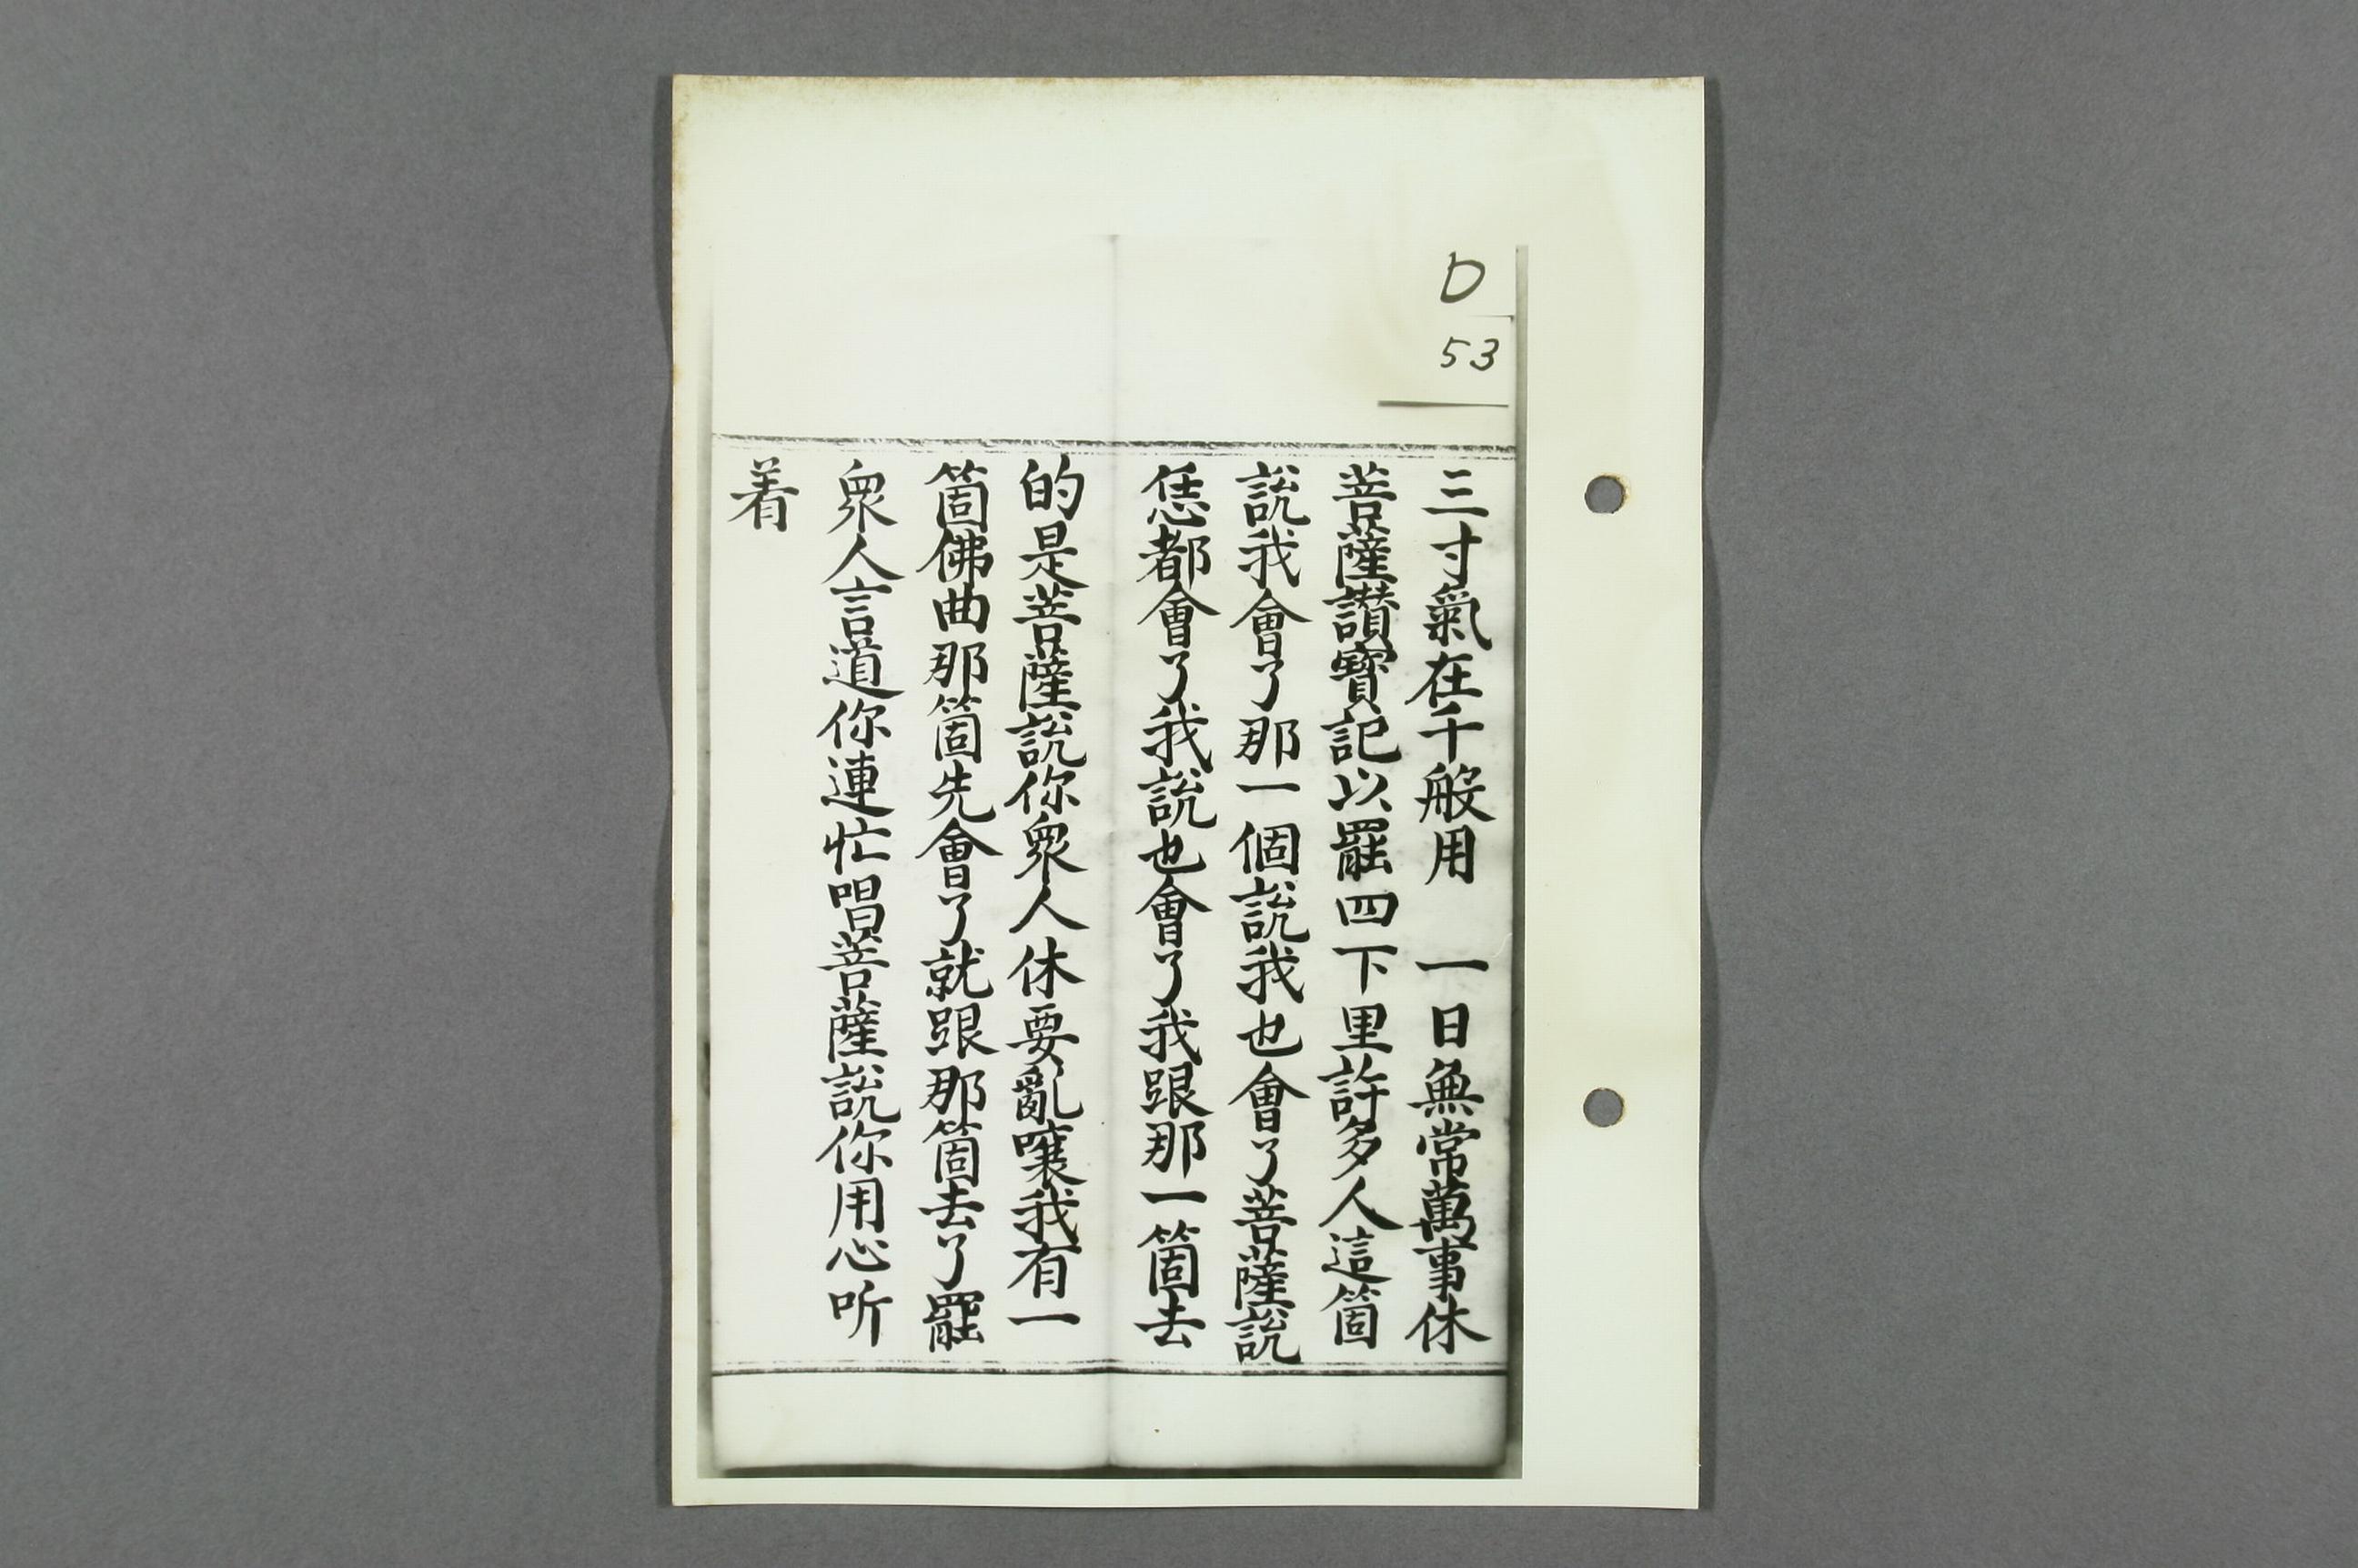 D
53
三寸氣在千般用　一日無常萬事休
菩薩讃寳記以罷四下里許多人這箇
説我會了那一個説我也會了菩薩説
恁都會了我説也會了我跟那一箇去
的是菩薩説你衆人休要亂嚷我有一
箇佛曲那箇先會了就跟那箇去了罷
衆人言道你連忙唱菩薩説你用心听
着